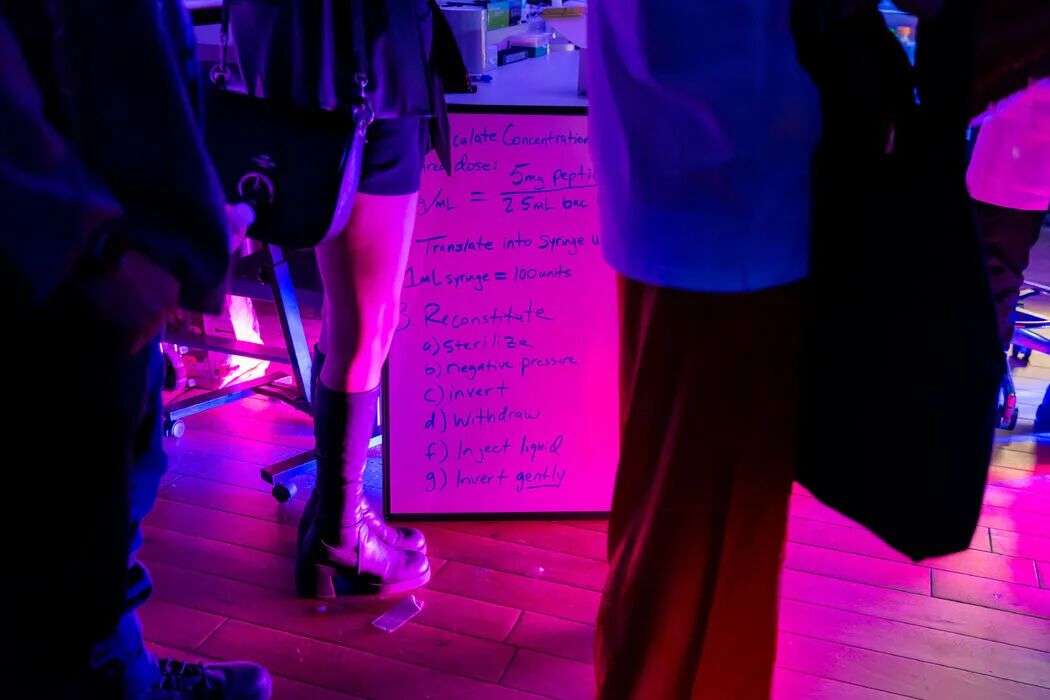 culate Concentration
dose:
5mg pepti
/mL = 2.5mL bac
Translate into Syringe u
1mL syringe = 100 units
3 Reconstitute
a) Sterilize
b) negative pressure
c) invert
d) Withdraw
f) Inject liquid
g) Invert gently